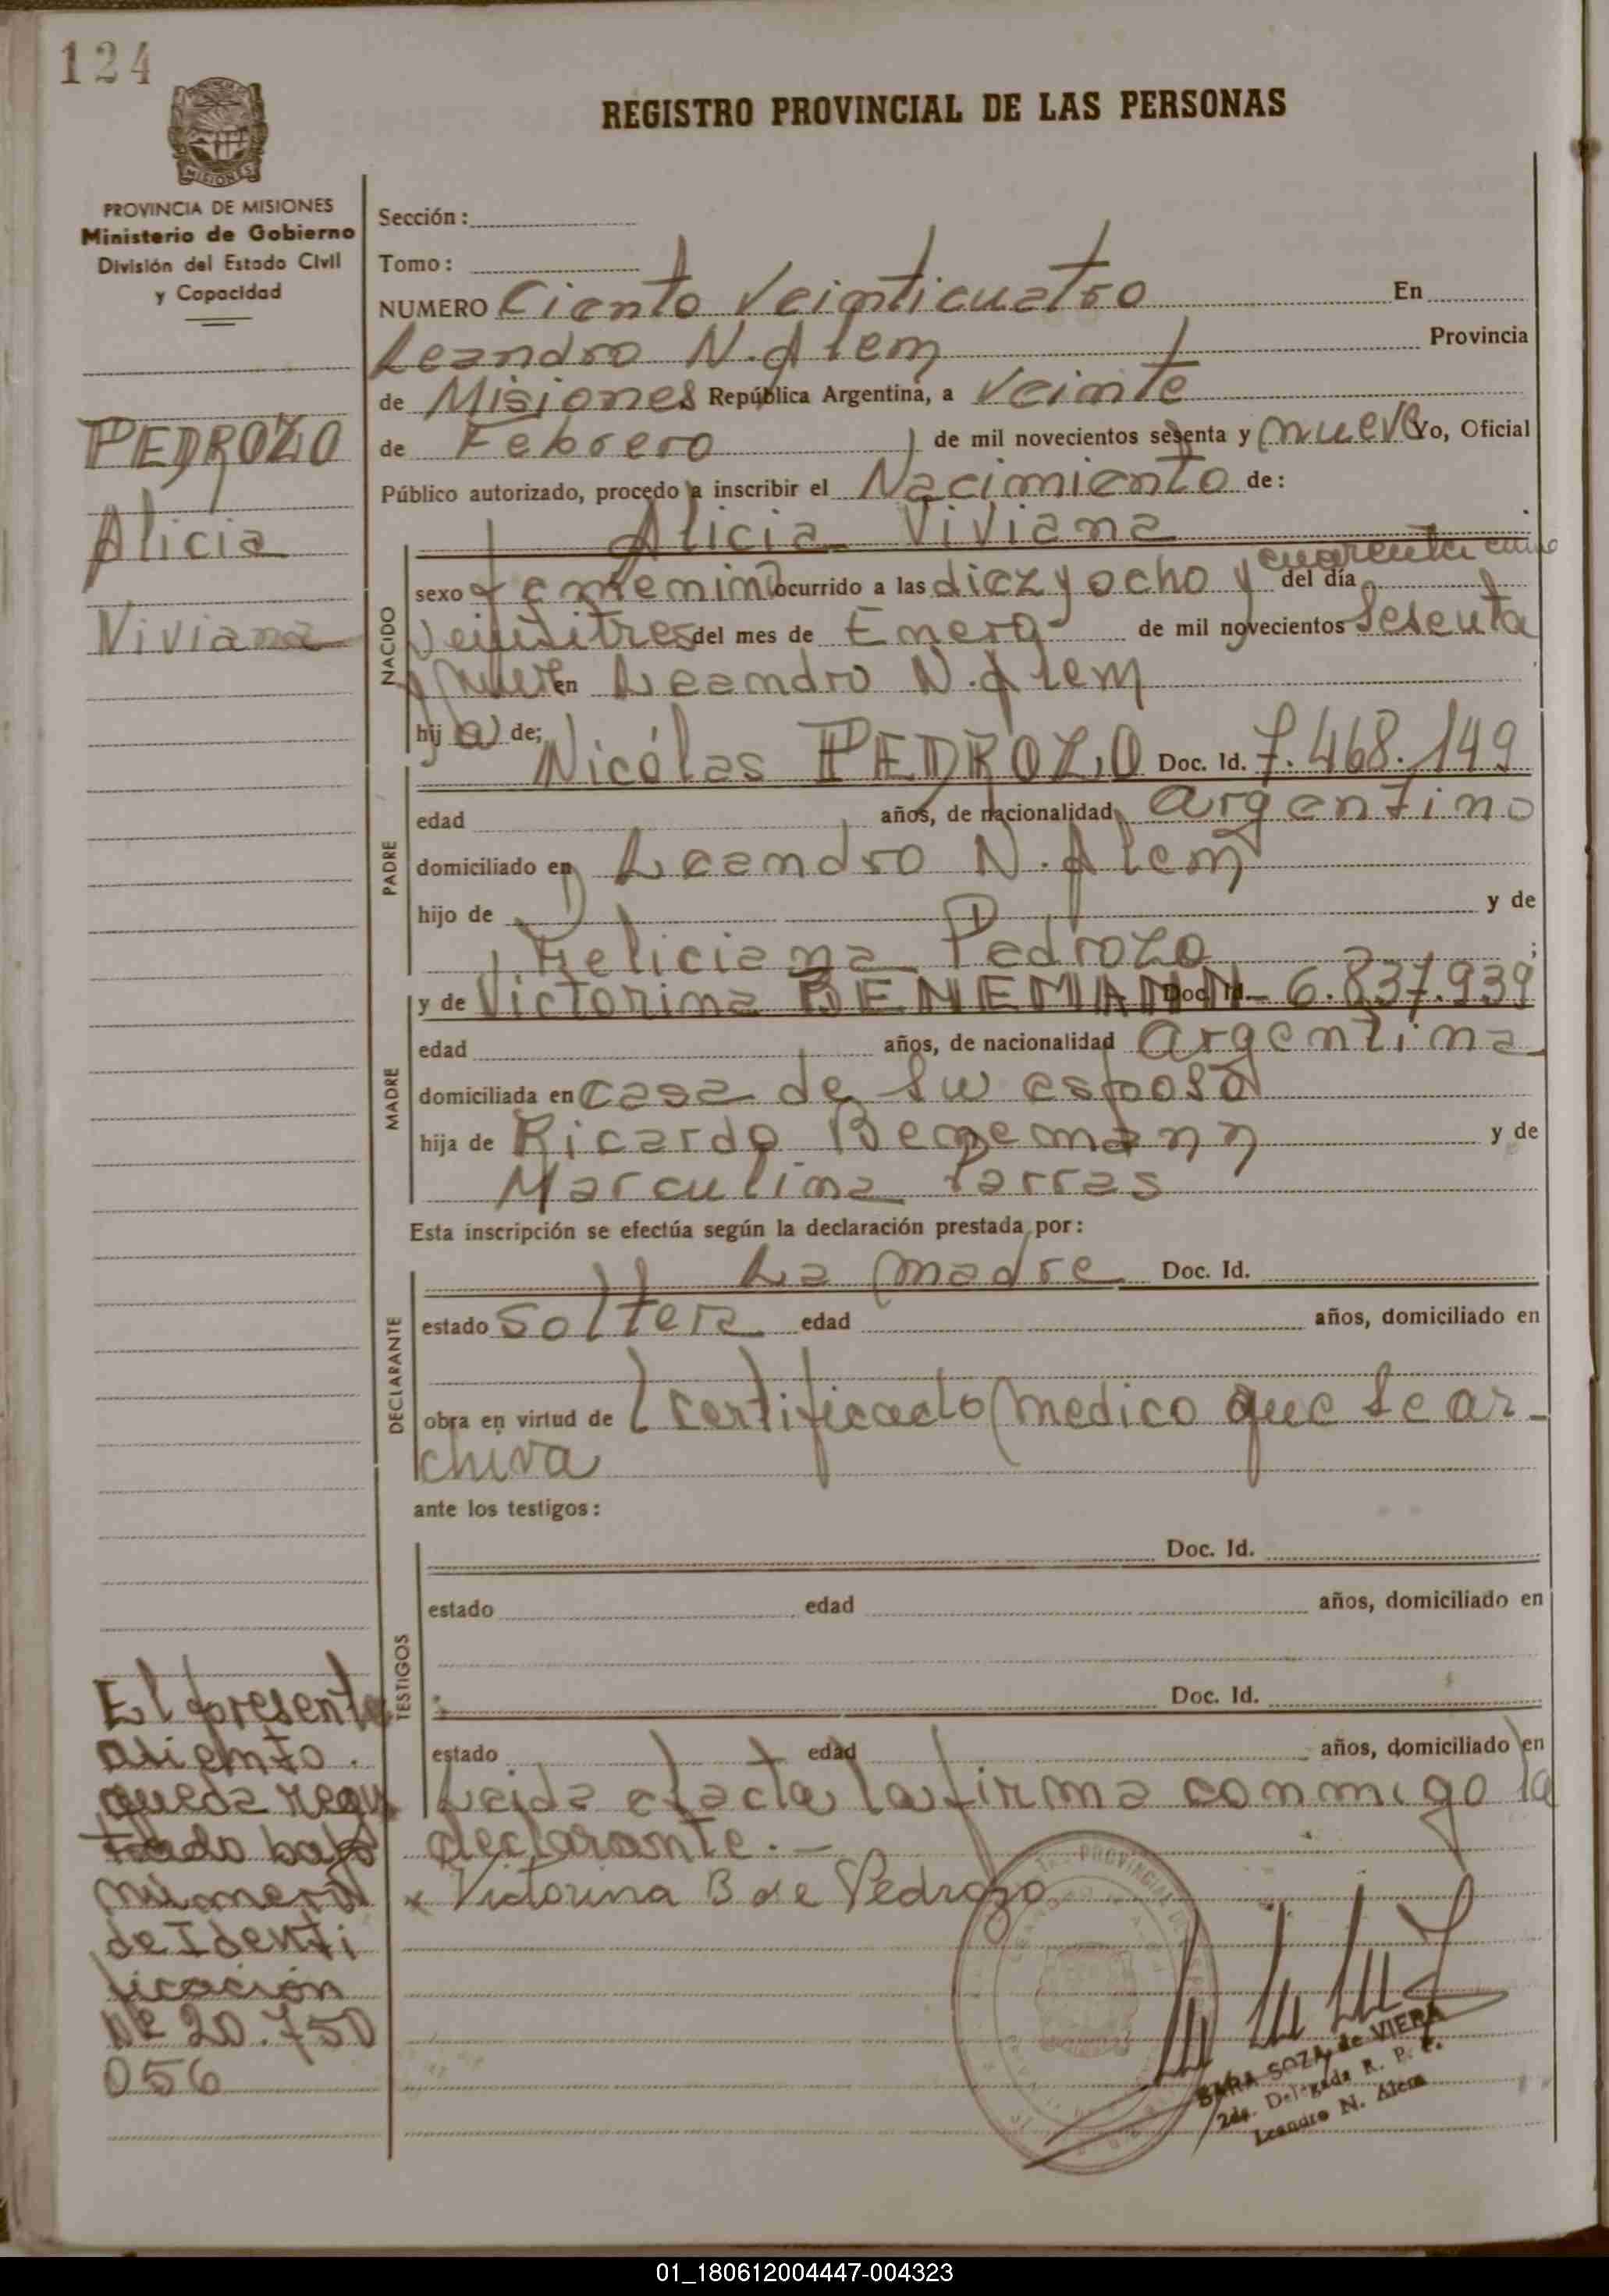 124
REGISTRO PROVINCIAL DE LAS PERSONAS
MISIONES
PROVINCIA DE MISIONES
Ministerio de Gobierno
División del Estado Civil
y Capacidad
PEDROZO
Alicia
Viviana
Sección:
Tomo:
NUMERO Ciento Veinticuatro En
Leandro N. Alem Provincia
de Misiones República Argentina, a Veinte
de Febrero de mil novecientos sesenta y nueve Yo, Oficial
Público autorizado, procedo a inscribir el Nacimiento de:
Alicia Viviana
NACIDO
sexo femenino ocurrido a las diez y ocho y cuarenta del día
veintitres del mes de Enero de mil novecientos sesenta
y nueve en Leandro N. Alem
hij (a) de;
Nicólas PEDROZO Doc. Id. 7.468.149
PADRE
edad años, de nacionalidad argentino
domiciliado en Leandro N. Alem
hijo de y de
Feliciana Pedrozo
MADRE
y de Victorina BENEMANN Doc. Id. 6.837.939
edad años, de nacionalidad argentina
domiciliada en casa de su esposo
hija de Ricardo Benemann y de
Marculina Parras
Esta inscripción se efectúa según la declaración prestada por:
DECLARANTE
La madre Doc. Id.
estado soltera edad años, domiciliado en
obra en virtud de l certificado medico que se ar-
chiva
ante los testigos:
TESTIGOS
Doc. Id.
estado edad años, domiciliado en
Doc. Id.
estado edad años, domiciliado en
Leida el acta la firma conmigo la
declarante.-
x Victorina B de Pedrozo
El presente
asiento
queda regis
trado bajo
número
de Identi
ficación
Nº 20.750
056
SARA SOZA de VIERA
2da. Delegada R. P. P.
Leandro N. Alem
01_180612004447-004323